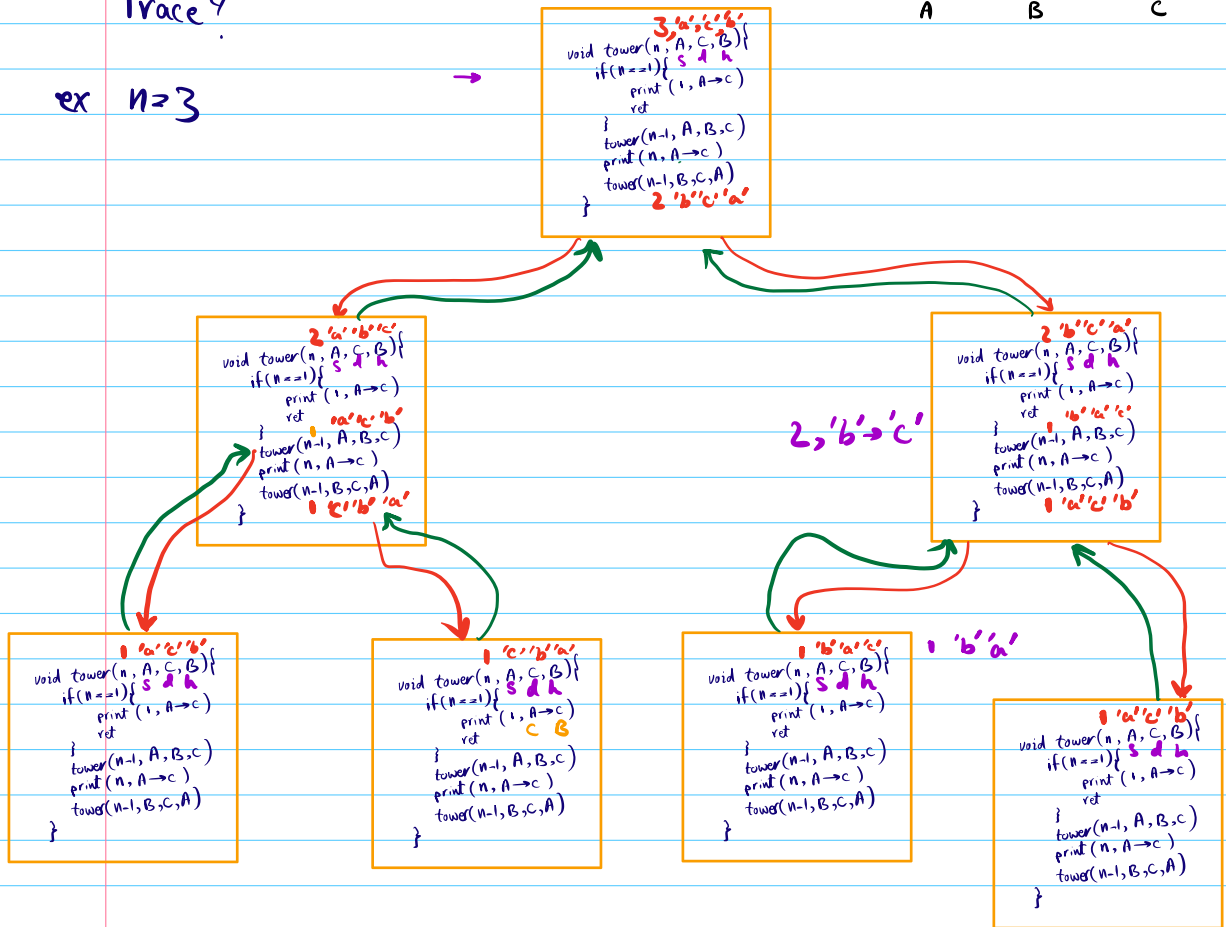 Trace
A B C
ex n=3
3,'a','c','b'
void tower(n, A, C, B){
s d h
if(n==1){
print (1, A→C)
ret
}
tower(n-1, A, B, C)
print(n, A→C)
tower(n-1, B, C, A)
2 'b' 'c' 'a'
}
2 'a' 'b' 'c'
void tower(n, A, C, B){
s d h
if(n==1){
print (1, A→C)
ret
1 'a' 'c' 'b'
}
tower(n-1, A, B, C)
print(n, A→C)
tower(n-1, B, C, A)
1 'c' 'b' 'a'
}
2, 'b'→'c'
2 'b' 'c' 'a'
void tower(n, A, C, B){
s d h
if(n==1){
print (1, A→C)
ret
1 'b' 'a' 'c'
}
tower(n-1, A, B, C)
print(n, A→C)
tower(n-1, B, C, A)
1 'a' 'c' 'b'
}
1 'a' 'c' 'b'
void tower(n, A, C, B){
s d h
if(n==1){
print (1, A→C)
ret
}
tower(n-1, A, B, C)
print(n, A→C)
tower(n-1, B, C, A)
}
1 'c' 'b' 'a'
void tower(n, A, C, B){
s d h
if(n==1){
print (1, A→C)
C B
ret
}
tower(n-1, A, B, C)
print(n, A→C)
tower(n-1, B, C, A)
}
1 'b' 'a' 'c'
void tower(n, A, C, B){
s d h
if(n==1){
print (1, A→C)
ret
}
tower(n-1, A, B, C)
print(n, A→C)
tower(n-1, B, C, A)
}
1 'b' 'a'
1 'a' 'c' 'b'
void tower(n, A, C, B){
s d h
if(n==1){
print (1, A→C)
ret
}
tower(n-1, A, B, C)
print(n, A→C)
tower(n-1, B, C, A)
}